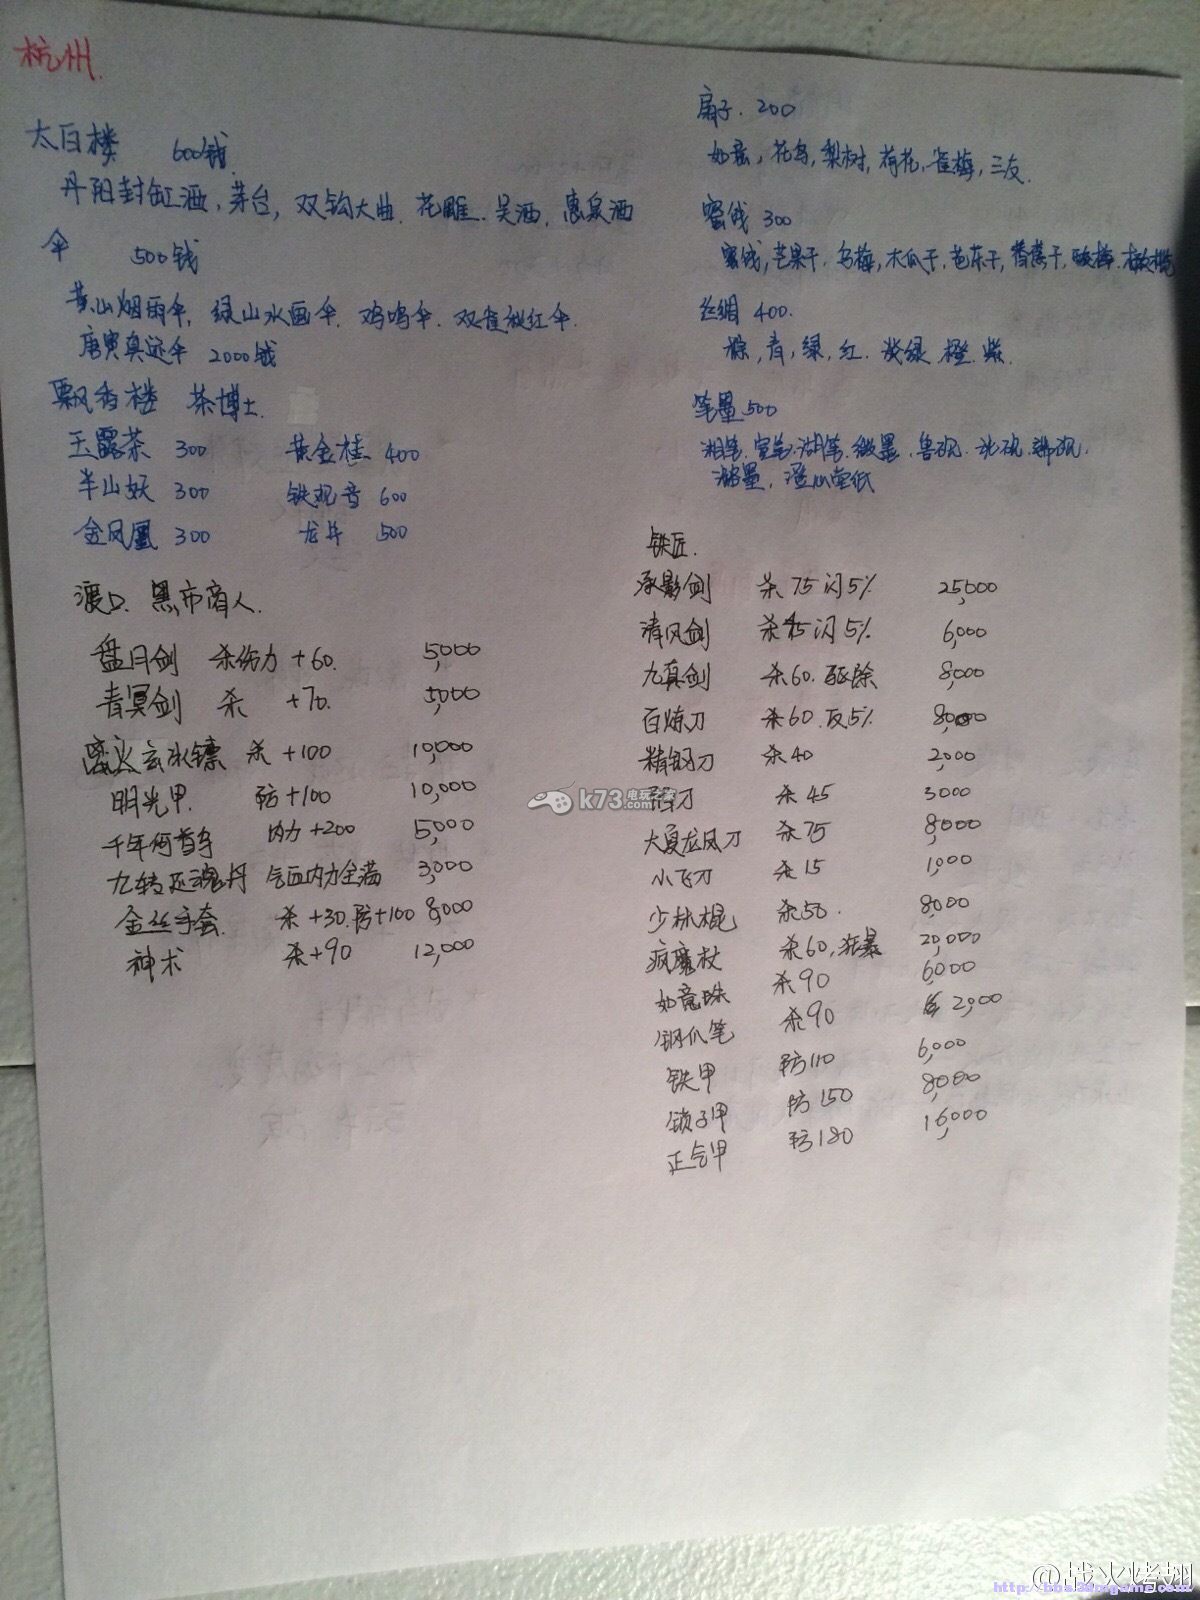 杭州.
太白楼 600钱
丹阳封缸酒, 茅台, 双钩大曲. 花雕. 吴酒. 惠泉酒
伞 500钱
黄山烟雨伞, 绿山水画伞. 鸡鸣伞. 双雀秋红伞.
唐寅真迹伞 2000钱
飘香楼 茶博士.
玉露茶 300 黄金桂 400
半山妖 300 铁观音 600
金凤凰 300 龙井 500
渡口. 黑市商人.
盘月剑 杀伤力 +60. 5,000
青冥剑 杀 +70. 5,000
玄冰镖 杀 +100 10,000
明光甲. 防+100 10,000
千年何首乌 内力+200 5,000
九转还魂丹 气血内力全满 3,000
金丝手套. 杀+30.防+100 8,000
神术 杀+90 12,000
扇子. 200
如意, 花鸟, 梨树, 荷花, 雀梅, 三友.
蜜饯 300
蜜饯, 芒果干. 乌梅, 木瓜干, 芭乐干, 香蕉干, 酸梅. 橄榄
丝绸 400.
棕, 青, 绿, 红. 淡绿. 橙. 紫.
笔墨 500
湘笔. 宣笔. 湖笔. 徽墨. 鲁砚. 洮砚. 端砚.
潞墨, 澄心堂纸
铁匠.
承影剑 杀75 闪5% 25,000
清风剑 杀45 闪5% 6,000
九真剑 杀60. 驱除 8,000
百炼刀 杀60. 反5% 8,000
精钢刀 杀40 2,000
刀 杀45 3000
大夏龙凤刀 杀75 8,000
小飞刀 杀15 1,000
少林棍 杀50. 8,000
疯魔杖 杀60, 狂暴 20,000
如意珠 杀90 6,000
钢爪笔 杀90 2,000
铁甲 防110 6,000
锁子甲 防150 8,000
正气甲 防180 16,000
k73.com
电玩之家
@战火烤翅